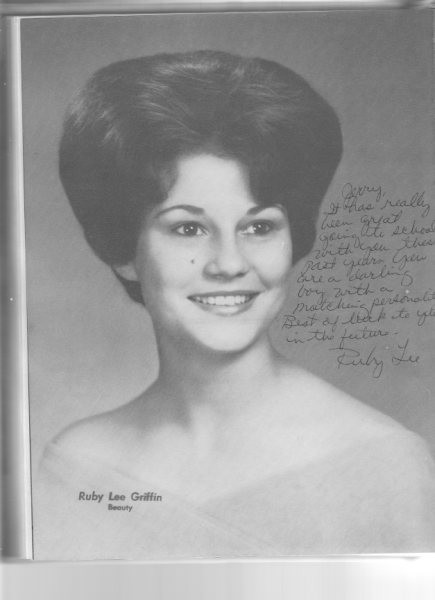 Jerry,
It has really
been great
going to school
with you these
past years. You
are a darling
boy with a
matching personalit
Best of luck to you
in the future.
Ruby Lee
Ruby Lee Griffin
Beauty